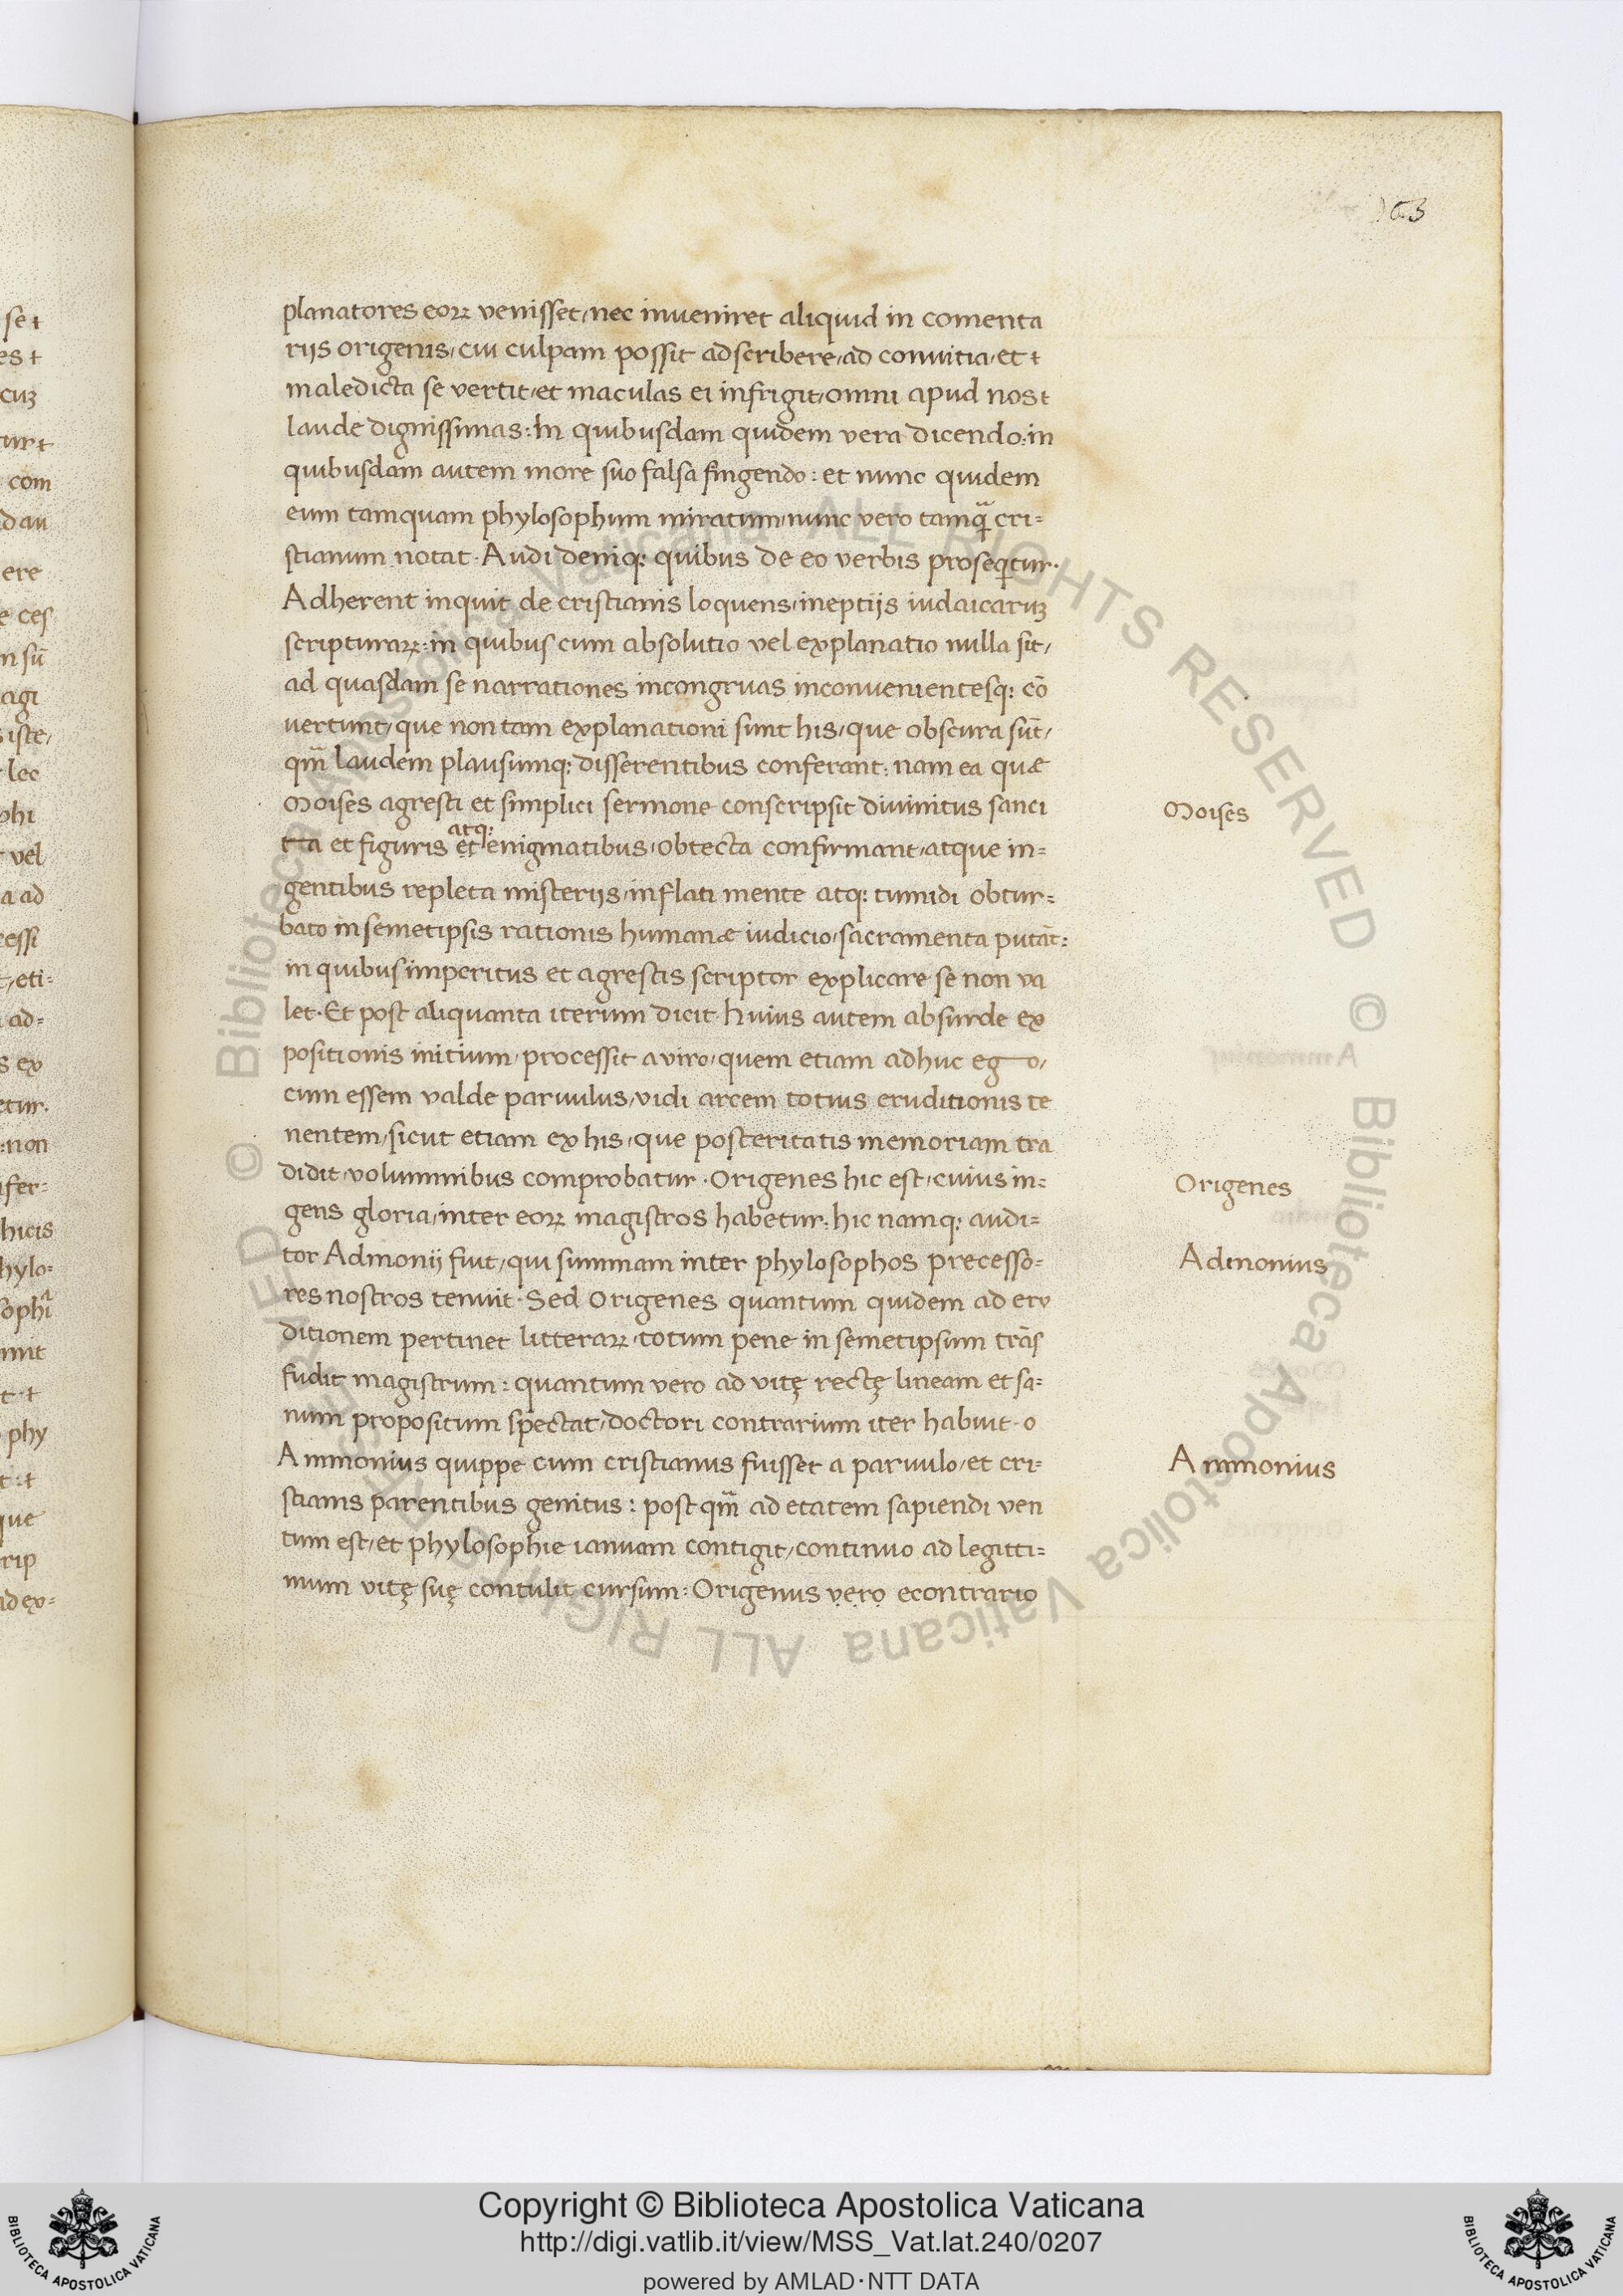 163
planatores eoꝝ venisset, nec inveniret aliquid in comenta
riis origenis, cui culpam possit adscribere, ad convitia, et
maledicta se vertit, et maculas ei infrigit, omni apud nos
laude dignissimas: In quibusdam quidem vera dicendo: in
quibusdam autem more suo falsa fingendo: et nunc quidem
eum tamquam phylosophum miratum, nunc vero tamqᷓ cri=
stianum notat. Audi deniqꝫ quibus de eo verbis proseqͥtur.
Adherent inquit de cristianis loquens, ineptijs iudaicaruꝫ
scripturaꝝ: in quibus cum absolutio vel explanatio nulla sit,
ad quasdam se narrationes incongruas inconvenientesqꝫ cō
vertunt, que non tam explanationi sunt his, que obscura sūt,
qm̄ laudem plausumqꝫ disserentibus conferant: nam ea quæ
Moises agresti et simplici sermone conscripsit divinitus sanci
tta et figuris et atqꝫ enigmatibus, obtecta confirmant, atque in=
gentibus repleta misterijs, inflati mente atqꝫ tumidi obtur=
bato in semetipsis rationis humanæ iudicio, sacramenta putāt:
in quibus imperitus et agrestis scriptor explicare se non va
let. Et post aliquanta iterum dicit. huius autem absurde ex
positionis initium, processit a viro, quem etiam adhuc ego,
cum essem valde parvulus, vidi arcem totius eruditionis te
nentem, sicut etiam ex his, que posteritatis memoriam tra
didit, voluminibus comprobatur. Origenes hic est, cuius in=
gens gloria, inter eoꝝ magistros habetur: hic namqꝫ audi=
tor Admonij fuit, qui summam inter phylosophos precesso=
res nostros tenuit. Sed Origenes quantum quidem ad eru
ditionem pertinet litteraꝝ, totum pene in semetipsum trās
fudit magistrum: quantum vero ad vitę rectę lineam et sa=
num propositum spectat, doctori contrarium iter habuit. o
Ammonius quippe cum cristianus fuisset a parvulo, et cri=
stianis parentibus genitus: post qm̄ ad etatem sapiendi ven
tum est, et phylosophie ianuam contigit, continuo ad legitti=
mum vitę suę contulit cursum: Origenus vero econtrario
Moises
Origenes
Admonius
Ammonius
© Biblioteca Apostolica Vaticana ALL RIGHTS RESERVED © Biblioteca Apostolica Vaticana ALL RIGHTS RESERVED
Copyright © Biblioteca Apostolica Vaticana
http://digi.vatlib.it/view/MSS_Vat.lat.240/0207
powered by AMLAD·NTT DATA
BIBLIOTECA APOSTOLICA VATICANA
BIBLIOTECA APOSTOLICA VATICANA